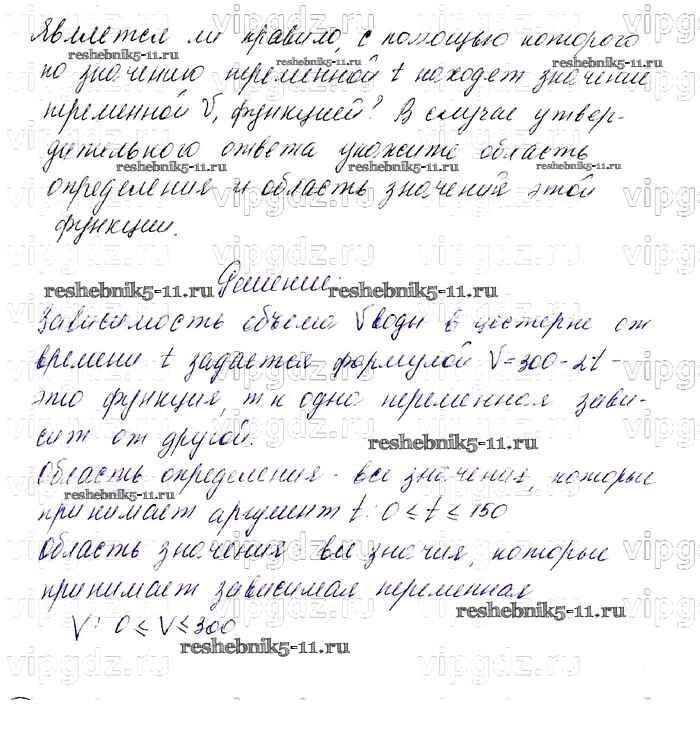 Является ли правило, с помощью которого
reshebnik5-11.ru reshebnik5-11.ru
по значению переменной t находят значение
переменной V, функцией? В случае утвер-
дительного ответа укажите область
reshebnik5-11.ru reshebnik5-11.ru reshebnik5-11.ru
определения и область значения этой
функции.
vipgdz.ru
Решение:
reshebnik5-11.ru reshebnik5-11.ru
Зависимость объема V воды в цистерне от
времени t задается формулой V=300-2t -
это функция, т к одна переменная зави-
сит от другой.
reshebnik5-11.ru
Область определения - все значения, которые
reshebnik5-11.ru
принимает аргумент t: 0 ≤ t ≤ 150
Область значения - все значия, которые
принимает зависимая переменная
reshebnik5-11.ru
V: 0 ≤ V ≤ 300
reshebnik5-11.ru
vipgdz.ru